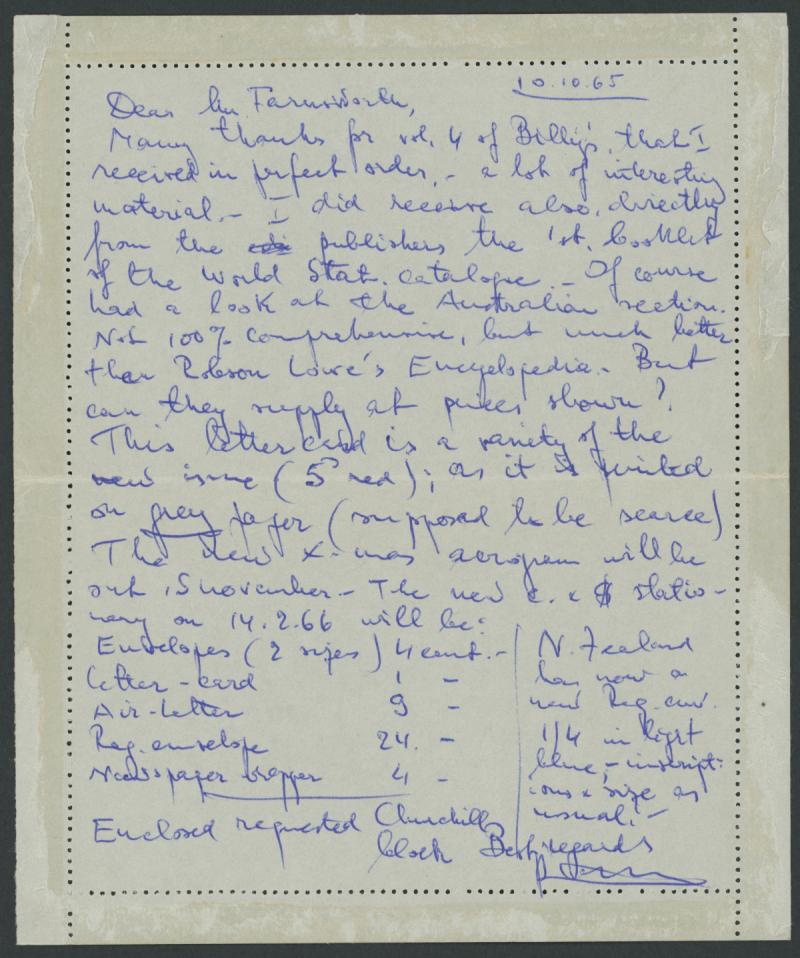 10.10.65
Dear Mr Farnsworth,
Many thanks for vol. 4 of Billig's, that I
received in perfect order, - a lot of interesting
material. - I did receive also, directly
from the publishers the 1st. booklet
of the World Stat. catalogue. - Of course
had a look at the Australian section.
Not 100% comprehensive, but much better
than Robson Lowe's Encyclopedia. - But
can they supply at prices shown?
This letter card is a variety of the
new issue (5ᵈ red); as it is printed
on grey paper (supposed to be scarce)
The new X-mas aerogram will be
out, 5 november. - The new c. & $ statio-
nery on 14.2.66 will be:
Envelopes (2 sizes) 4 cent. -
Letter-card 1 -
Air-letter 9 -
Reg. envelope 24. -
Newspaper wrapper 4 -
N. Zealand
has now a
new Reg. env.
1/4 in light
blue, - inscript-
ions & size as
usual. -
Enclosed requested Churchill
block Best regards